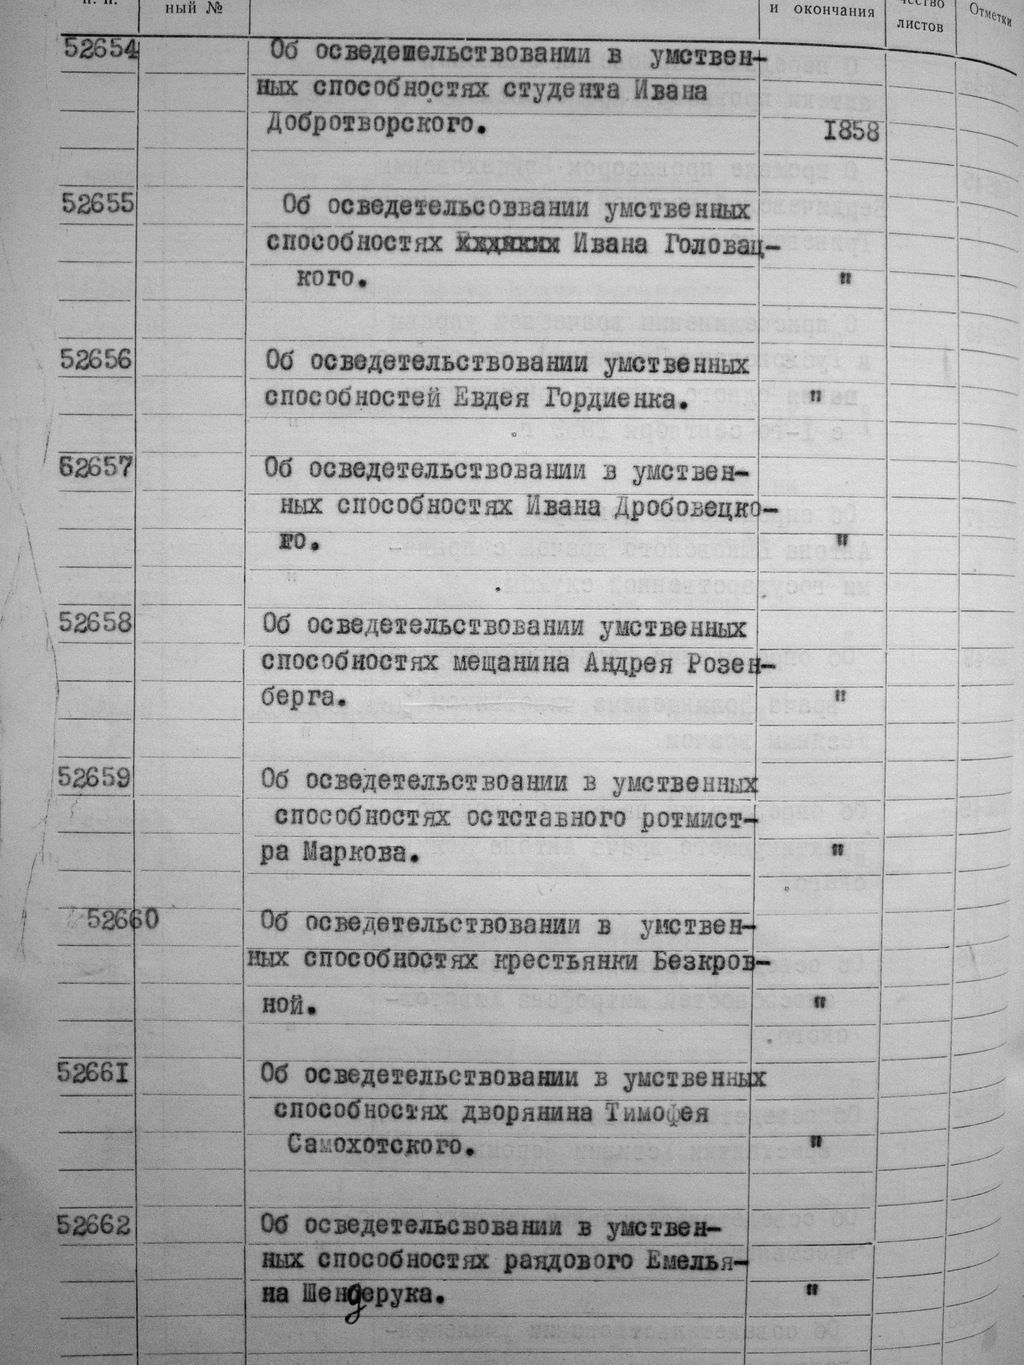 п. п.
ный №
и окончания
чество
листов
Отметки
52654 Об осведешельствовании в умствен-
ных способностях студента Ивана
Добротворского. 1858
52655 Об осведетельсоввании умственных
способностях Ивана Головац-
кого. "
52656 Об осведетельствовании умственных
способностей Евдея Гордиенка. "
52657 Об осведетельствовании в умствен-
ных способностях Ивана Дробовецко-
го. "
52658 Об осведетельствовании умственных
способностях мещанина Андрея Розен-
берга. "
52659 Об осведетельствоании в умственных
способностях остставного ротмист-
ра Маркова. "
52660 Об осведетельствовании в умствен-
ных способностях крестьянки Безкров-
ной. "
52661 Об осведетельствовании в умственных
способностях дворянина Тимофея
Самохотского. "
52662 Об осведетельсвовании в умствен-
ных способностях раядового Емелья-
на Шендерука. "